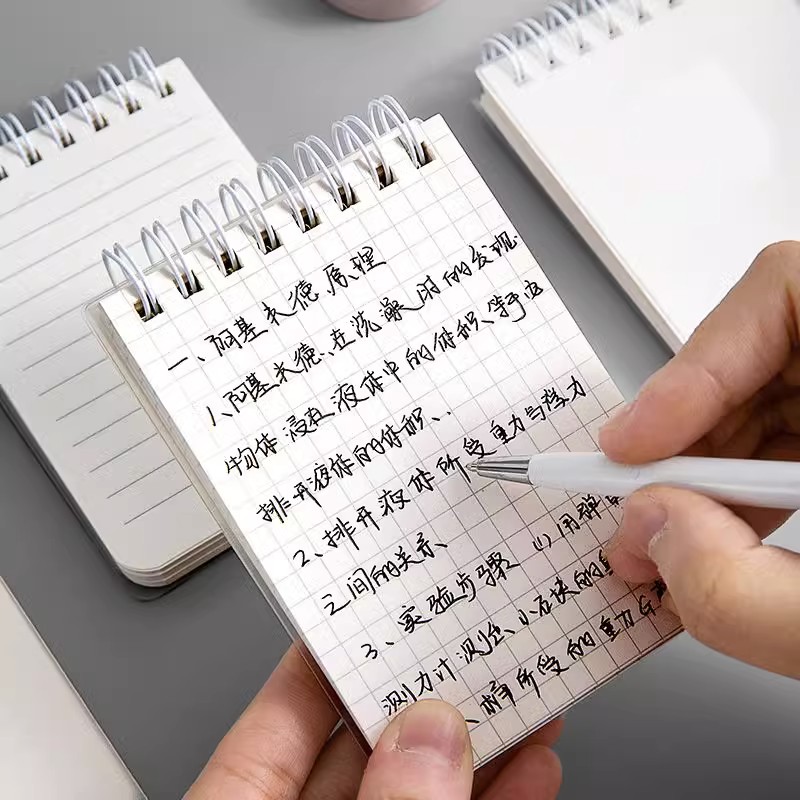 一、阿基米德原理
1、阿基米德、在洗澡时的发现.
物体浸在液体中的体积、等于它
排开液体的体积、.
2、排开液体所受重力与浮力
之间的关系、
3、实验步骤 (1) 用弹
测力计测出、小石块的
、桶所受的重力G